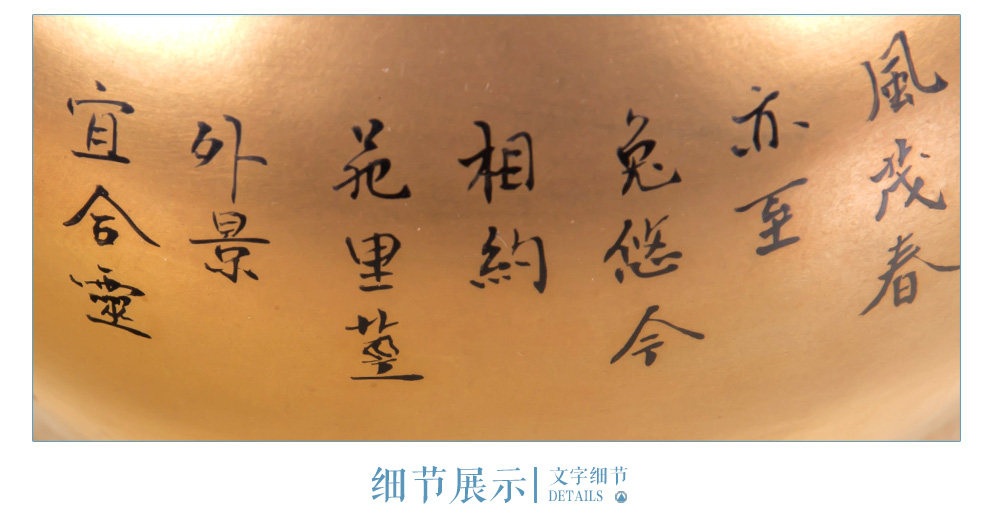 風茂春
亦至
兔悠今
相約
苑里
外景
宜合靈
细节展示
文字细节
DETAILS